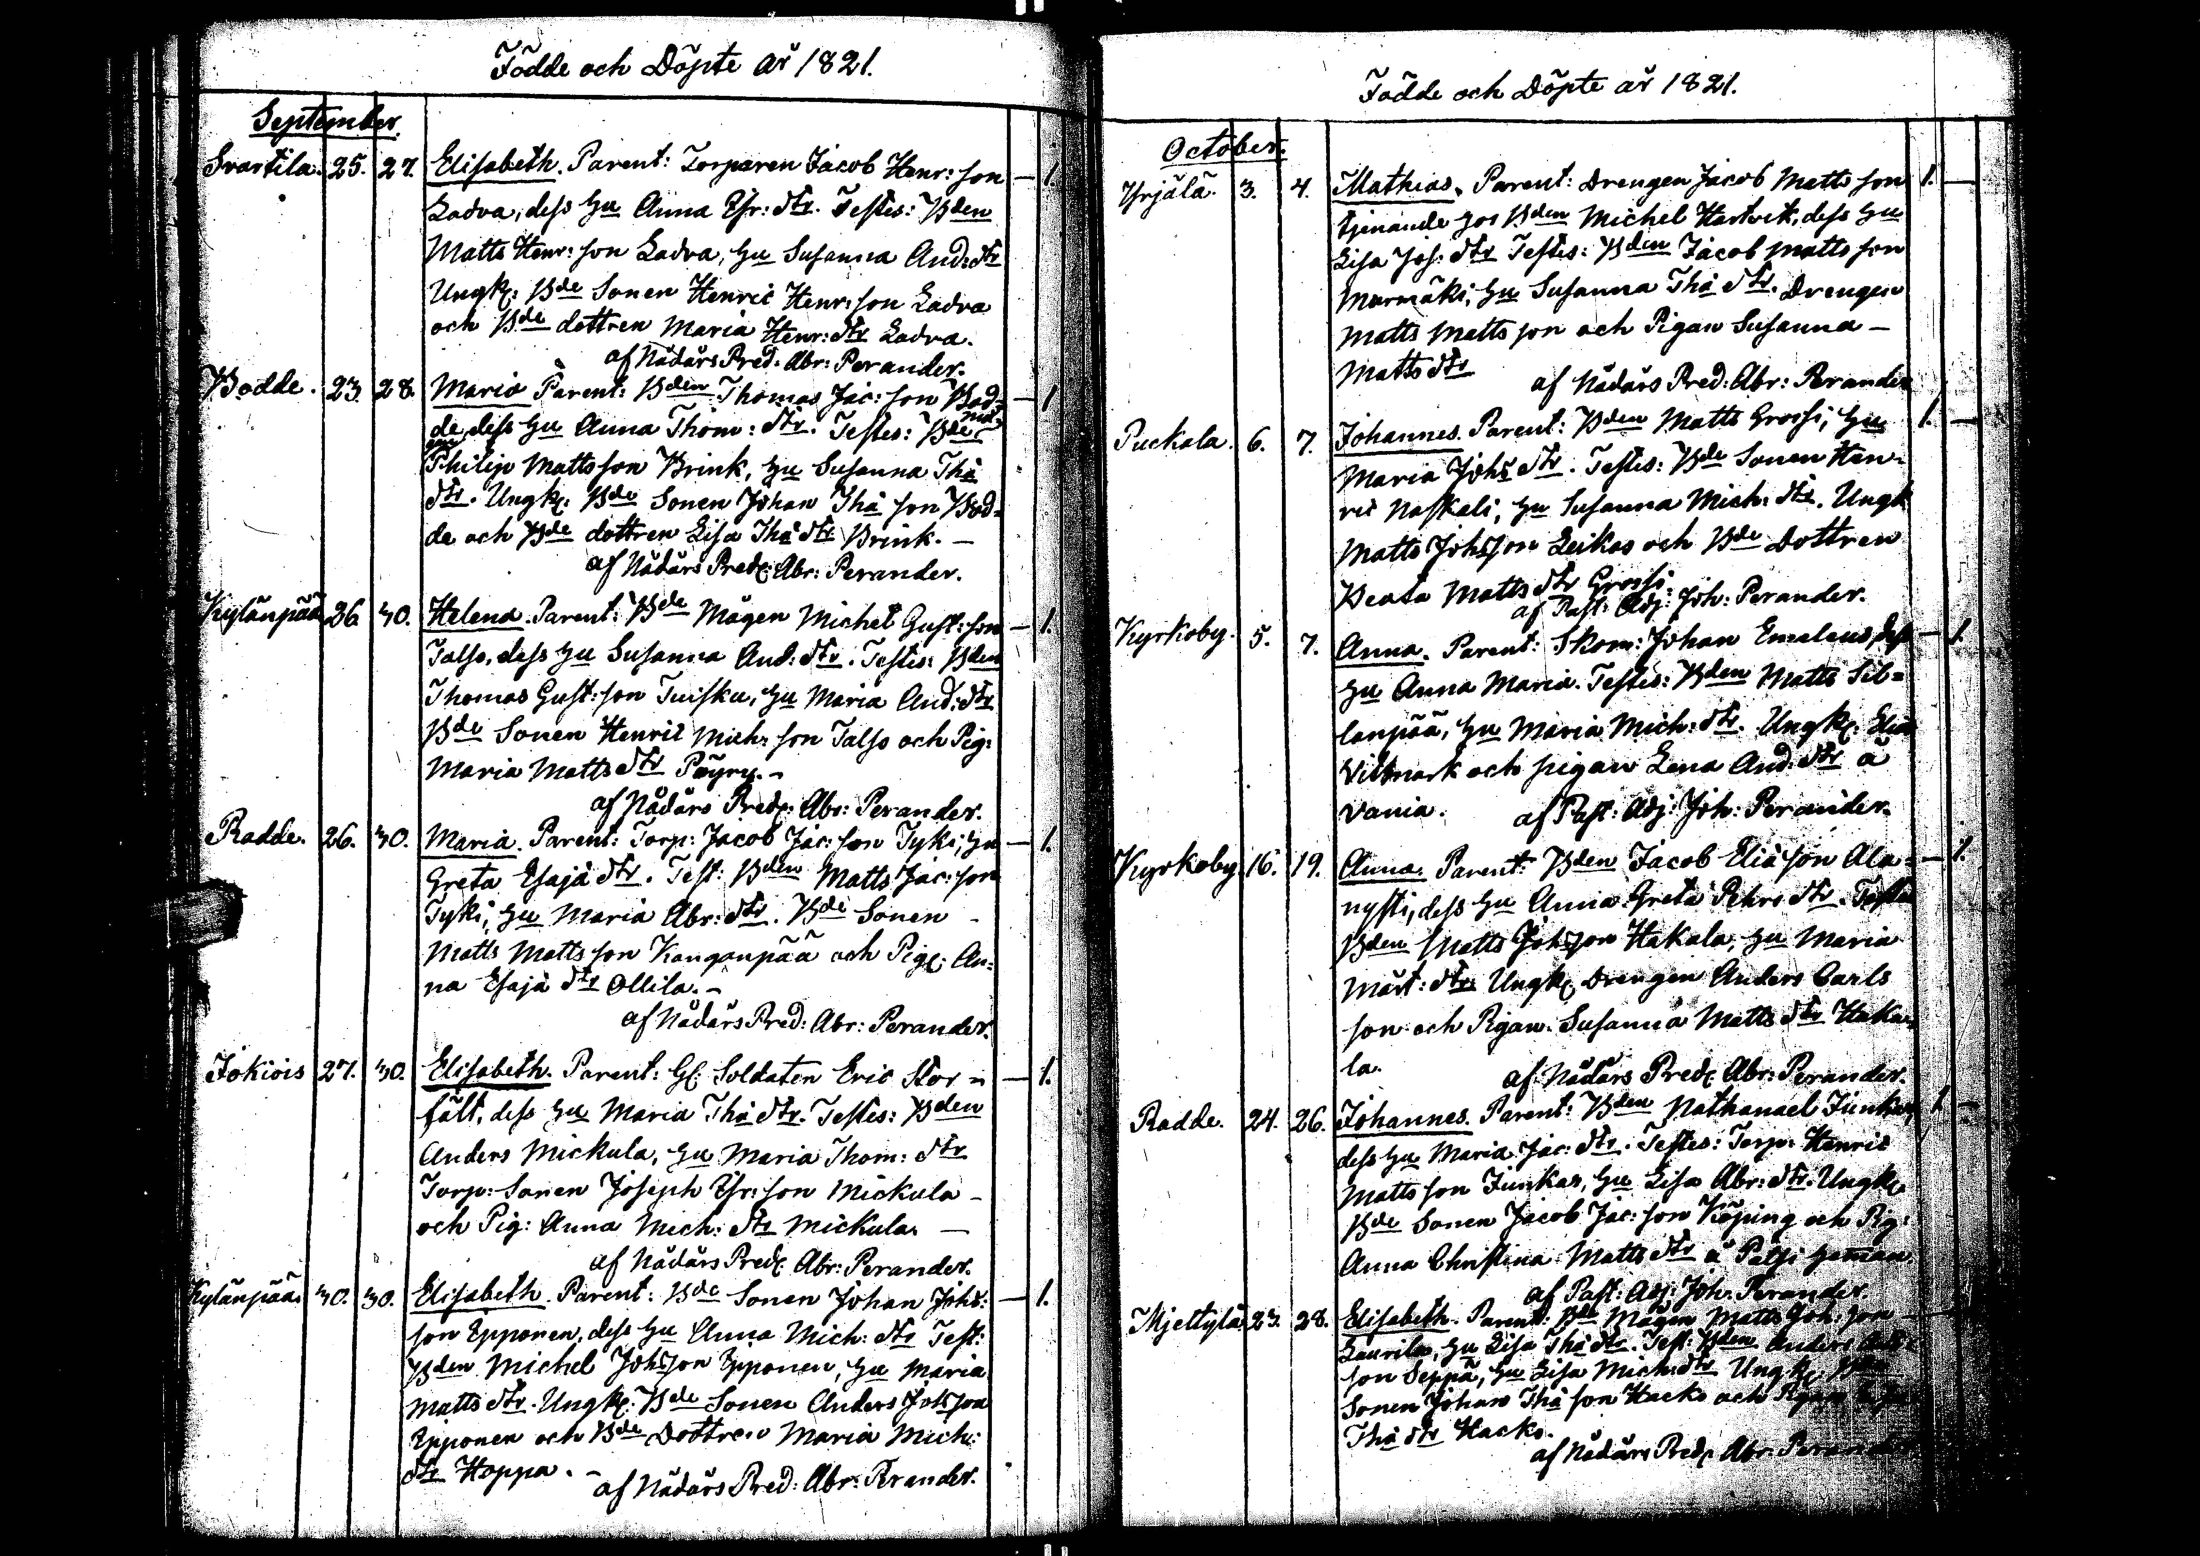 Födde och Döpte år 1821.
September.
Svartila. 25. 27. Elisabeth. Parent: Torparen Jacob Henr: son — 1.
Ladva, dess hu Anna Efr: dtr. Testes: Bden
Matts Henr: son Ladva, hu Susanna And: dtr
Ungk: Bde Sonen Henric Henr: son Ladva
och Bde dottren Maria Henr: dtr Ladva.
af Nådårs Pred: Abr: Perander.
Bodde. 23. 28. Maria Parent: Bden Thomas Jac: son Bod= — 1
de, dess hu Anna Thom: dtr. Testes: Bde
Philip Matts son Brink, hu Susanna Thå
dtr. Ungk: Bde Sonen Johan Thå son Bod=
de och Bde dottren Lisa Thå dtr Brink. —
af Nådårs Pred: Abr: Perander.
Kylänpää 26 30. Helena. Parent: Bde Mågen Michel Gust: son — 1.
Talso, dess hu Susanna And: dtr. Testes: Bden
Thomas Gust: son Tuisku, hu Maria And: dtr
Bde Sonen Henric Mich: son Talso och Pig:
Maria Matts dtr Pöyry. —
af Nådårs Pred: Abr: Perander.
Radde. 26. 30. Maria. Parent: Torp: Jacob Jac: son Tyki, hu — 1.
Greta Esajä dtr. Test: Bden Matts Jac: son
Tyki, hu Maria Abr: dtr. Bde Sonen -
Matts Matts son Kanganpää och Pig: An=
na Esajä dtr Ollila. —
af Nådårs Pred: Abr: Perander.
Jokiois 27. 30. Elisabeth. Parent: Gl. Soldaten Eric Stor = — 1.
fält, dess hu Maria Thå dtr. Testes: Bden
Anders Mickula, hu Maria Thom: dtr
Torp: Sonen Joseph Efr: son Mickula -
och Pig: Anna Mich: dtr Mickula. —
af Nådårs Pred: Abr: Perander.
Kylänpää. 30. 30. Elisabeth. Parent: Bde Sonen Johan Johs: — 1.
son Epponen, dess hu Anna Mich: dtr Test:
Bden Michel Johsson Epponen, hu Maria
Matts dtr. Ungk: Bde Sonen Anders Johsson
Epponen och Bde Dottren Maria Mich:
dtr Hoppa. —
af Nådårs Pred: Abr: Perander.
Födde och Döpte år 1821.
October.
Yrjälä. 3. 4. Mathias. Parent: Drengen Jacob Matts son 1. —
tjenande hos Bden Michel Hartvik, dess hu
Lisa Jos: dtr Testes: Bden Jacob Matts son
Murmäki, hu Susanna Thå dtr. Drengen
Matts Matts son och Pigan Susanna —
Matts dtr
af Nådårs Pred: Abr: Perander
Puckala. 6. 7. Johannes. Parent: Bden Matts Grossi, hu 1. —
Maria Johs dtr. Testes: Bde Sonen Hen-
ric Naskali, hu Susanna Mich: dtr. Ungk
Matts Johsson Leikas och Bde Dottren
Beata Matts dtr Grossi.
af Past: Adj: Joh: Perander.
Kyrkoby. 5. 7. Anna. Parent: Skom: Johan Emeleus, dess — 1.
hu Anna Maria. Testes: Bden Matts Sil=
lanpää, hu Maria Mich: dtr. Ungk: Elias
Vittmark och pigan Lena And: dtr å
Vania.
af Past: Adj: Joh: Perander.
Kyrkoby. 16. 19. Anna. Parent: Bden Jacob Eliä son Ala= — 1.
nysti, dess hu Anna Greta Pehrs dtr. Testes
Bden Matts Johsson Hakala, hu Maria
Mårt: dtr. Ungk: Drengen Anders Carls
son och Pigan Susanna Matts dtr Haka=
la.
af Nådårs Pred: Abr: Perander.
Radde. 24. 26. Johannes. Parent: Bden Nathanael Junkar, 1 —
dess hu Maria Jac: dtr. Testes: Torp: Henric
Matts son Junkar, hu Lisa Abr: dtr. Ungk:
Bde Sonen Jacob Jac: son Köping och Pig:
Anna Christina Matts dtr å Palsi heman.
af Past: Adj: Joh: Perander.
Mjettylä 23. 28. Elisabeth. Parent: Bde Mågen Matts Joh: son —
Laurila, hu Lisa Thå dtr. Test: Bden Anders
son Seppä, hu Lisa Mich: dtr Ungk: Bde
Sonen Johan Thå son Hacko och
Thå dtr Hacko.
af Nådårs Pred: Abr: Perander